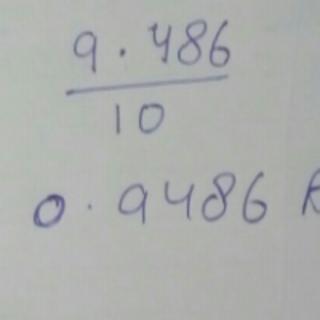 9.486
10
0.9486